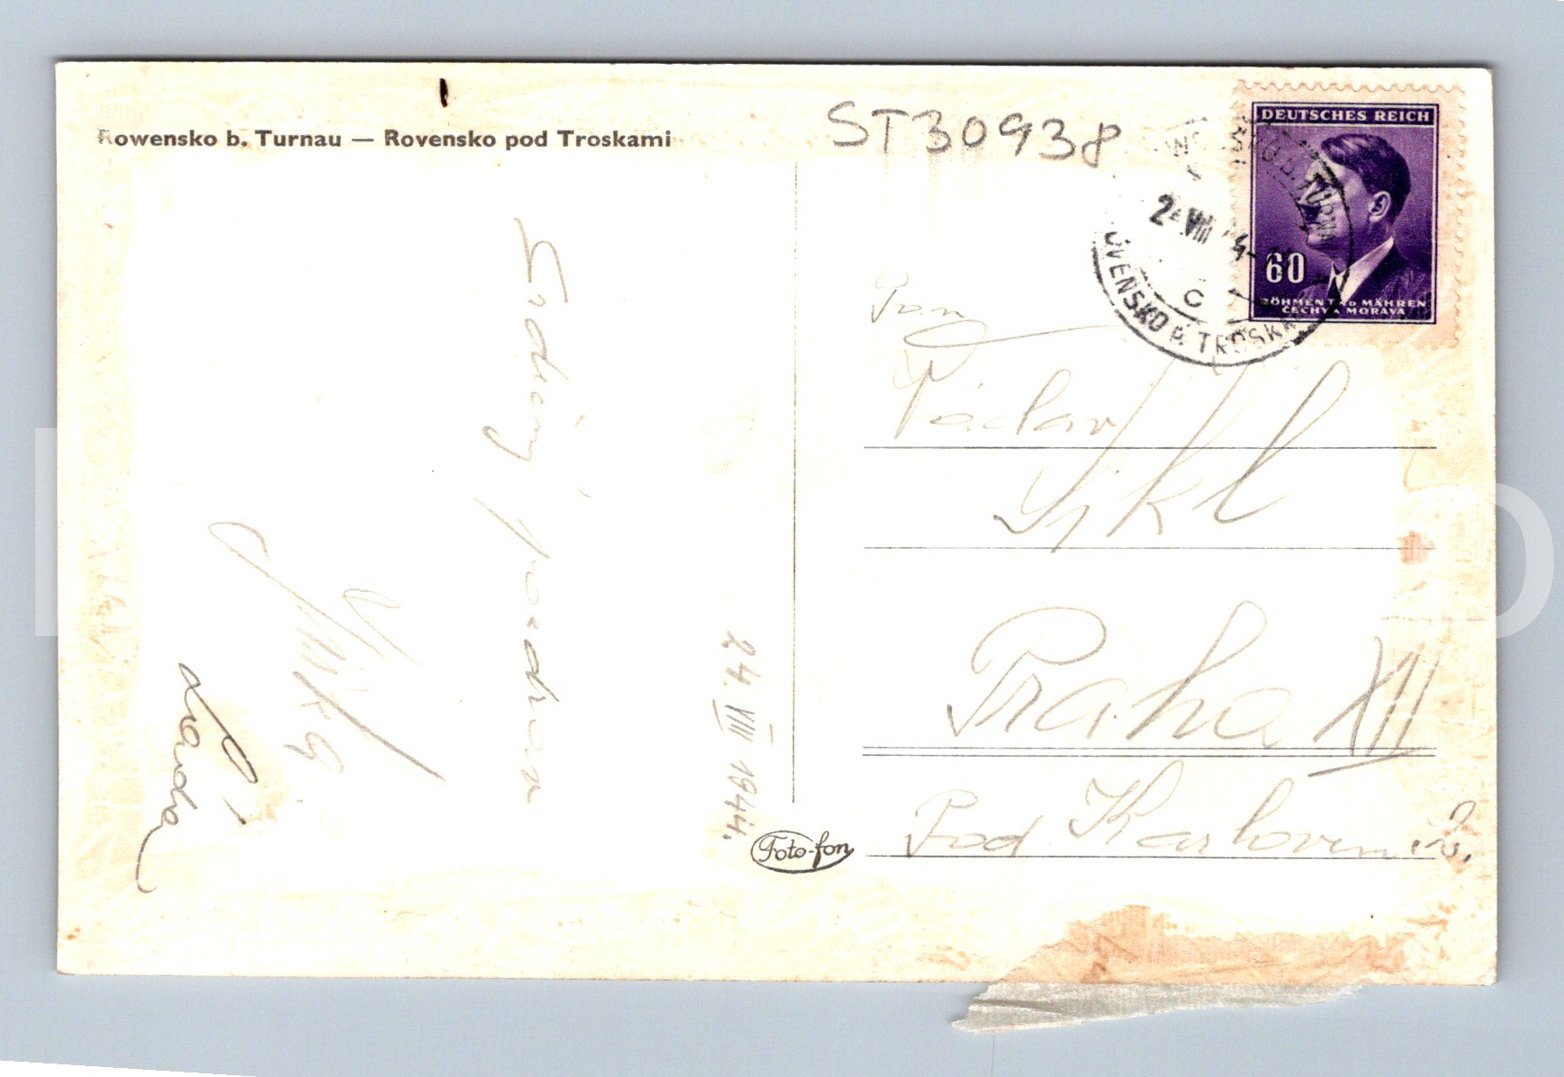 Rowensko b. Turnau — Rovensko pod Troskami
ST30938
DEUTSCHES REICH
60
BÖHMEN UND MÄHREN
ČECHY A MORAVA
OVENSKO P. TROSKA
VIII
C
Srdečný pozdrav
Jirka
24. VIII 1944.
Pan
Václav
Praha XII
Pod Karlovem
Foto-fon